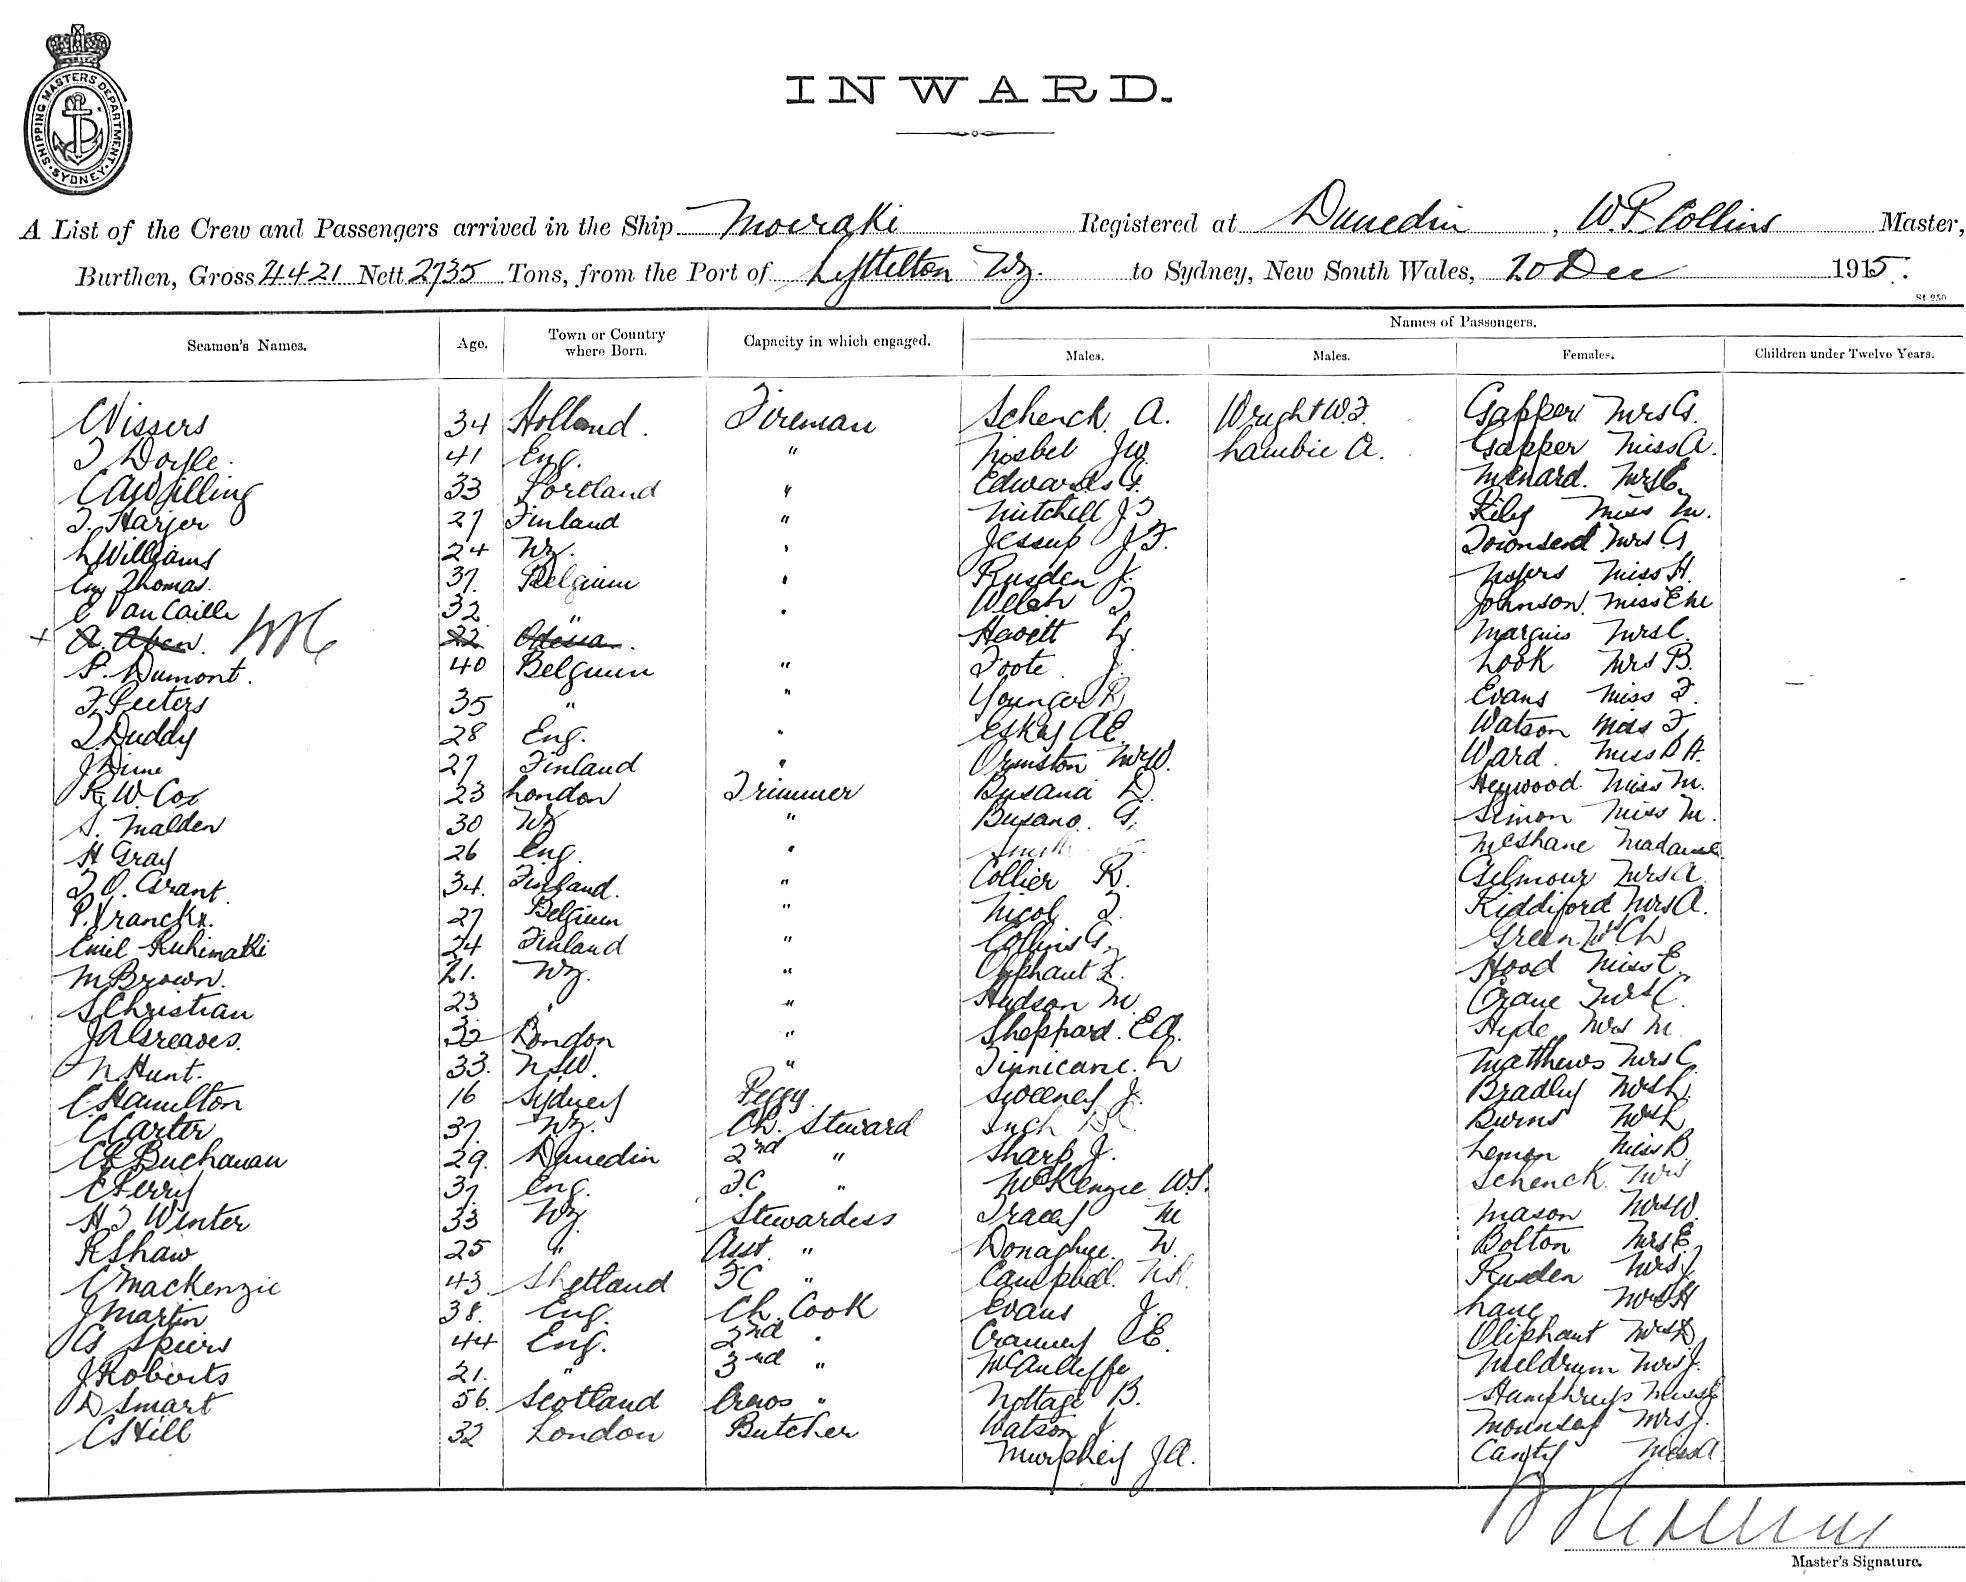 SHIPPING MASTERS DEPARTMENT. SYDNEY.
INWARD.
A List of the Crew and Passengers arrived in the Ship Moeraki Registered at Dunedin, W. P. Collins Master,
Burthen, Gross 4421 Nett 2735 Tons, from the Port of Lyttelton Nz. to Sydney, New South Wales, 20 Dec 1915.
St 250
Names of Passengers.
Seamen's Names. Age. Town or Country where Born. Capacity in which engaged. Males. Males. Females. Children under Twelve Years.
C Vissers 34 Holland. Fireman Schenck A. Wright W.F. Gapper Mrs G.
T Doyle. 41 Eng. " Nisbet JW Lambie A. Gapper Miss A.
33 Portland " Edwards G. Menard. Mrs C.
T. Harjer 27 Finland " Mitchell J T Riley Miss M.
L Williams 24 Nz. " Jessup J.F. Townsend Mrs G
Thomas. 37. Belgium " Rusden J. Miss H.
C Van Caille 32 " " Welch T Johnson. Miss
A. Aben. 22 Odessa. Hewett Marquis Mrs C.
P. Dumont. 40 Belgium " Foote J. Look Mrs B.
F. Peeters 35 " " Younger R Evans Miss F.
T. Duddy 28 Eng. " A E. Watson Miss F
27 Finland " Ormston Mr W. Ward. Miss D A.
R. W. Cox 23 London Trimmer Busana D. Heywood Miss M.
S. Malden 30 Nz " Busano. G. Simon Miss M.
H Gray 26 Eng. " McShane
T. O. Grant. 34. Finland. " Collier R. Gilmour Mrs A.
P. Vranckx. 27 Belgium " Nicol T. Kiddiford Mrs A.
Emil Ruhimaki 24 Finland " Collins G. Green
M Brown. 21. Nz. " Oliphant F. Hood Miss E.
S Christian 23 " " Hudson M. Crane Mrs C.
J A Greaves. 32 London " Sheppard. E A. Hyde Mrs M.
N Hunt. 33. N S W. " Finnicane. L Matthews Mrs C.
C Hamilton 16 Sydney Peggy. Sweeney J. Bradley Mrs L.
C Carter 37. Nz. Ch. Steward Inch Burns Mrs L
C E Buchanan 29. Dunedin 2nd " Sharp J. Lemon Miss B.
E Perry 37. Eng. F.C " McKenzie W.S. Schenck. Mrs
H J Winter 33 Nz Stewardess Tracey M Mason Mrs W.
R Shaw 25 " Asst. " Donaghue. W. Bolton Mrs E.
C Mackenzie 43 Shetland FC " Campbell. Rusden Mrs J.
J Martin 38. Eng. Ch. Cook Evans J. Lane Mrs H
G Speirs 44 Eng. 2nd " Cranney E. Oliphant Mrs D.
J Roberts 21. " 3rd " McAuliffe Meldrum Mrs J.
D Smart 56. Scotland Crews " Nottage B. Humphreys Miss
C Hill 32 London Butcher Watson J Mounsey Mrs J.
Murphy J A. Canty Miss A.
Master's Signature.